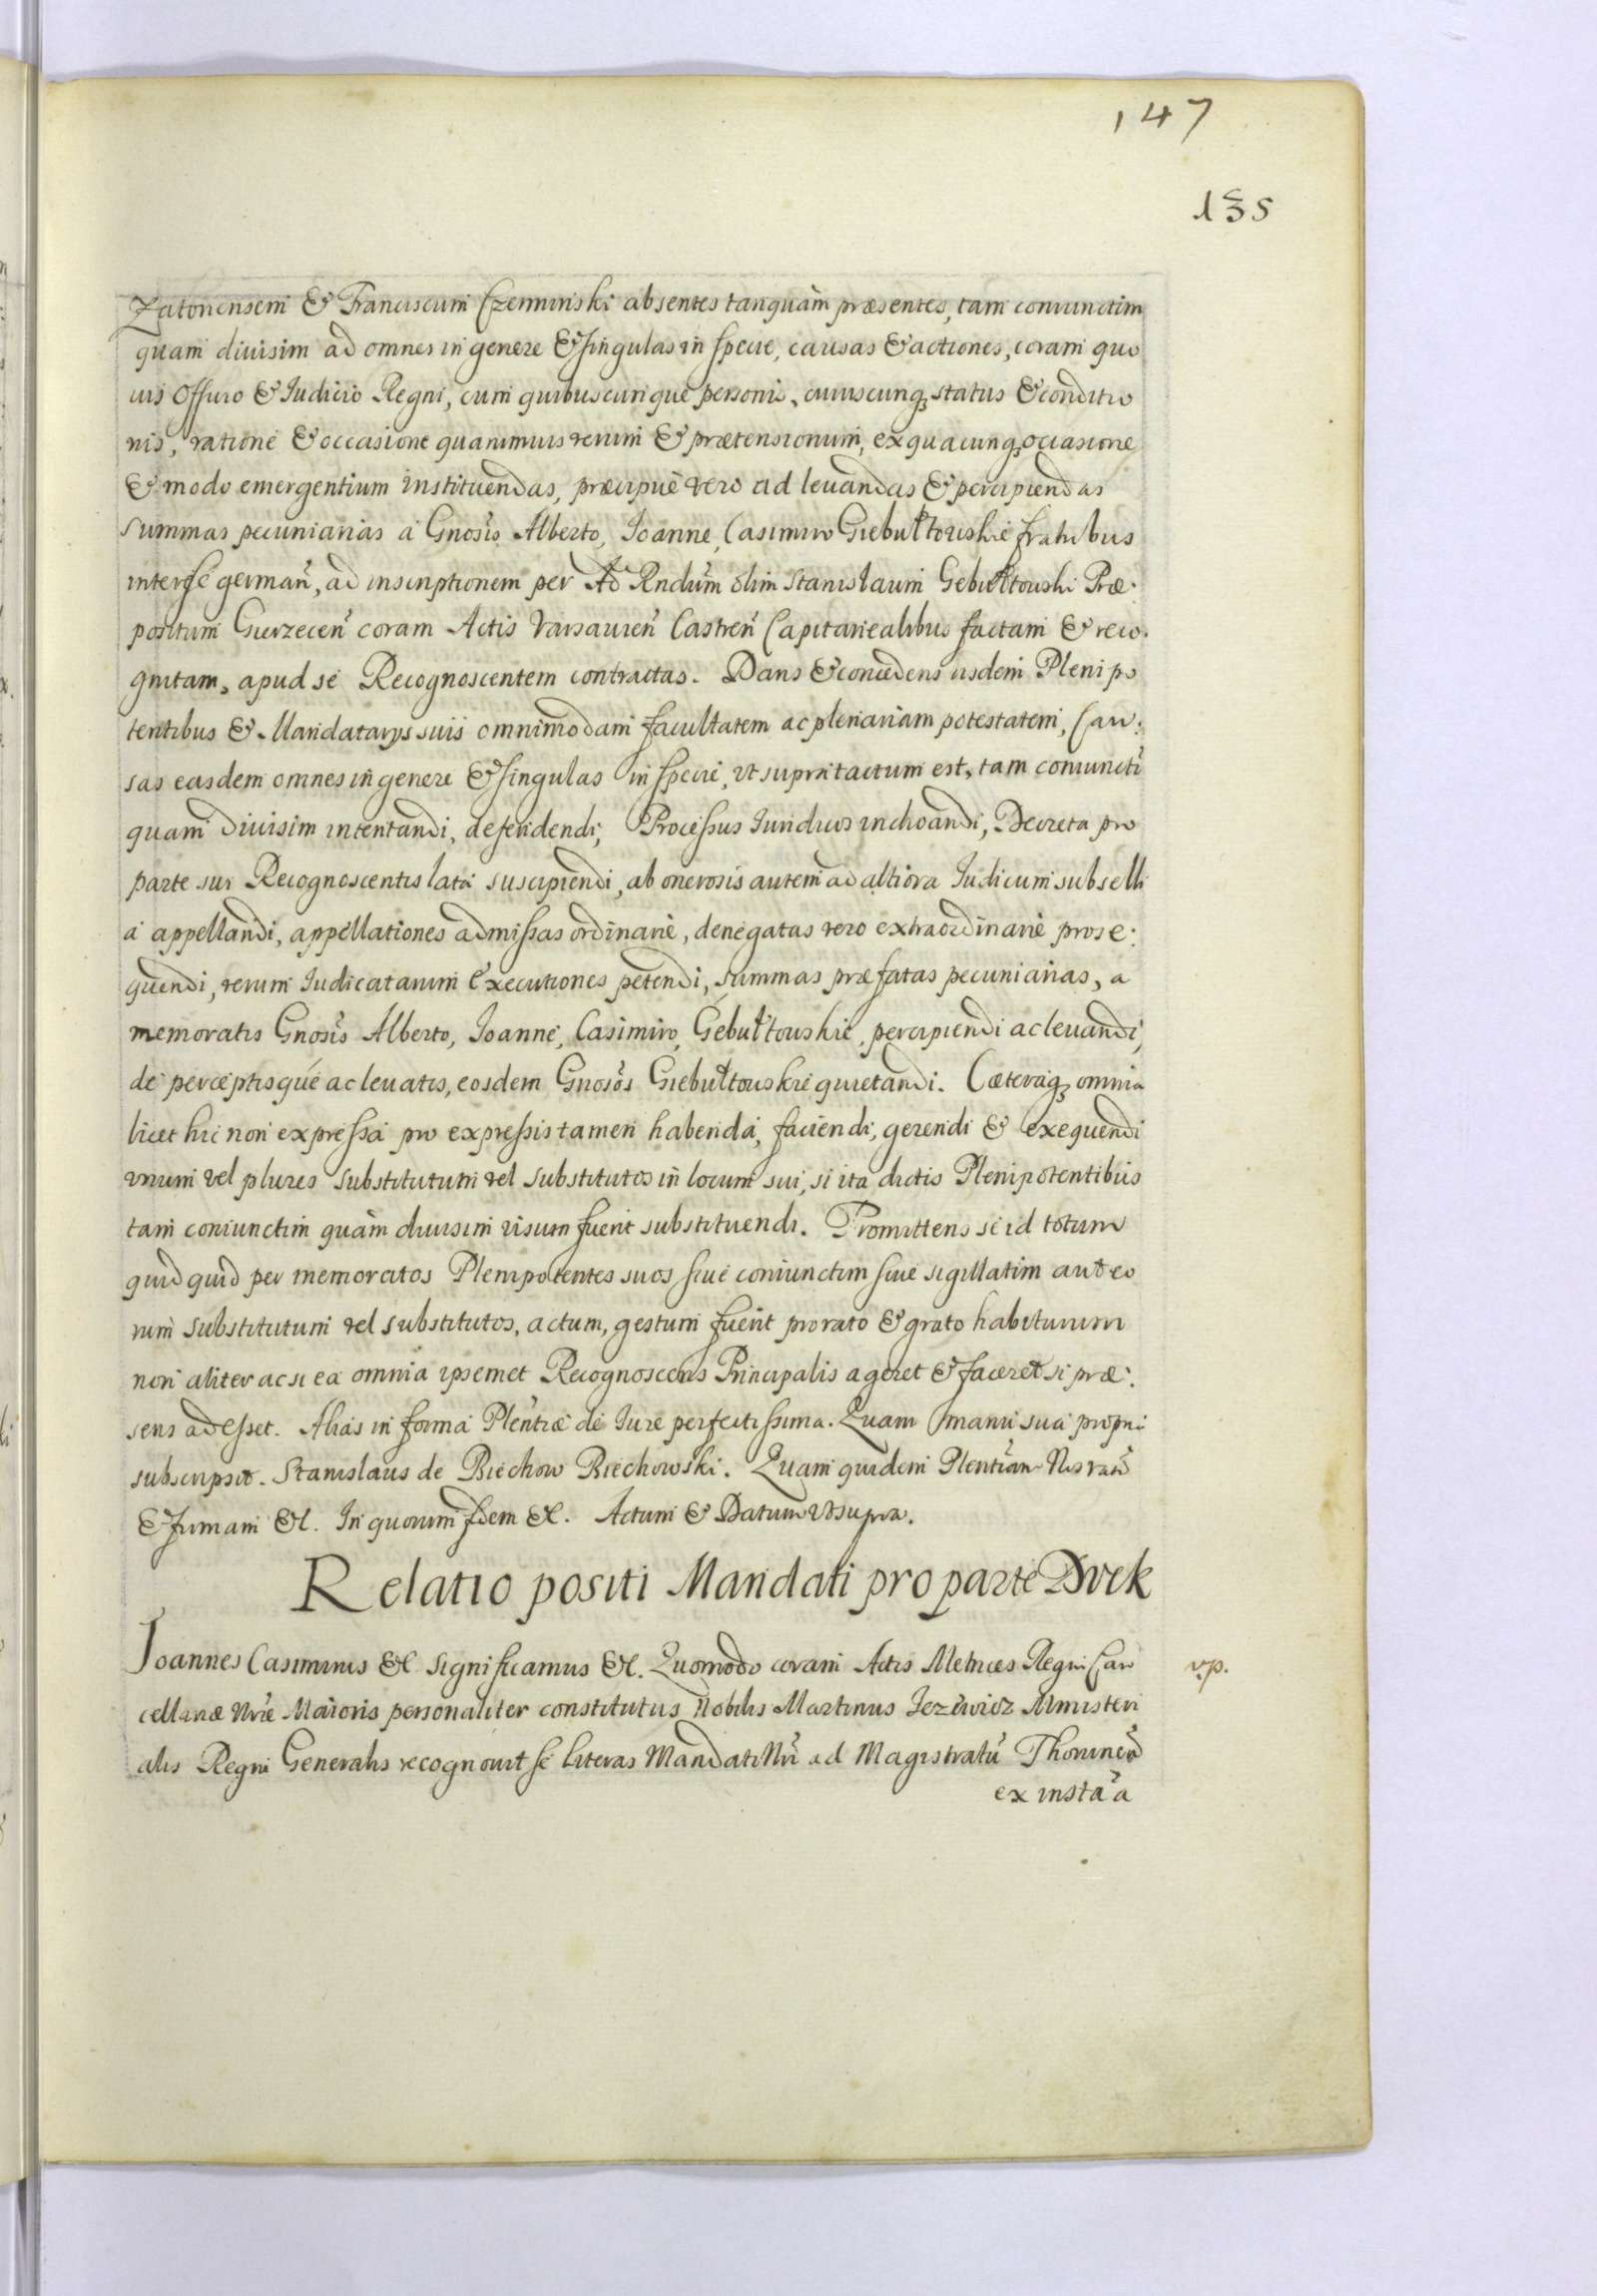 147
135
Zatonensem & Franciscum Czeminski absentes tanquàm præsentes, tam coniunctim
quam diuisim ad omnes in genere & singulas in specie, causas & actiones, coram quo
uis Officio & Iudicio Regni, cum quibuscunque personis, cuiuscunq; status & conditio
nis, ratione & occasione quarumuis rerum & prætensionum, ex quacunq; occasione
& modo emergentium instituendas, præcipuè vero ad leuandas & percipiendas
summas pecuniarias à Gnosis Alberto, Ioanne, Casimiro Giebułtouskie fratribus
inter se german, ad inscriptionem per Ad Rndum olim Stanislaum Gebułtouski Præ:
positum Gierzecen coram Actis Varsauien Castren Capitanealibus factam & reco.
gnitam, apud se Recognoscentem contractas. Dans & concedens iisdem Plenipo
tentibus & Mandatarys suis omnimodam facultatem ac plenariam potestatem, Cau:
sas easdem omnes in genere & singulas in specie, vt supra tactum est, tam coniuncti
quam diuisim intentandi, defendendi, Processus Iuridicos inchoandi, Decreta pro
parte sui Recognoscentis lata suscipiendi, ab onerosis autem ad altiora Iudicum subselli
a appellandi, appellationes admissas ordinariè, denegatas vero extraordinariè prose:
quendi, rerum Iudicatarum executiones petendi, summas præfatas pecuniarias, a
memoratis Gnosis Alberto, Ioanne, Casimiro, Gebułtouskie, percipiendi ac leuandi,
de perceptisque ac leuatis, eosdem Gnosos Giebułtouskie quietandi. Cæteraq; omnia
licet hic non expressa pro expressis tamen habenda, faciendi, gerendi & exequendi
vnum vel plures substitutum vel substitutos in locum sui, si ita dictis Plenipotentibus
tam coniunctim quàm diuisim visum fuerit substituendi. Promittens se id totum
quidquid per memoratos Plenipotentes suos siue coniunctim siue sigillatim aut eo
rum substitutum vel substitutos, actum, gestum fuerit pro rato & grato habiturum
non aliter ac si ea omnia ipsemet Recognoscens Principalis ageret & faceret si præ:
sens adesset. Alias in forma Plentiæ de Iure perfectissima. Quam manu sua propri
subscripsit. Stanislaus de Biechow Biechowski. Quam quidem Plentiam Nos ratam
& firmam &c. In quorum fidem &c. Actum & Datum vt supra.
Relatio positi Mandati pro parte Dvek
Ioannes Casimirus &c significamus &c. Quomodo coram Actis Metrices Regni Can
cellariæ Nræ Maioris personaliter constitutus Nobilis Martinus Jezewicz Ministeri
alis Regni Generalis recognouit se literas Mandati Nri ad Magistratu Thorunen
ex insta a
v.p.